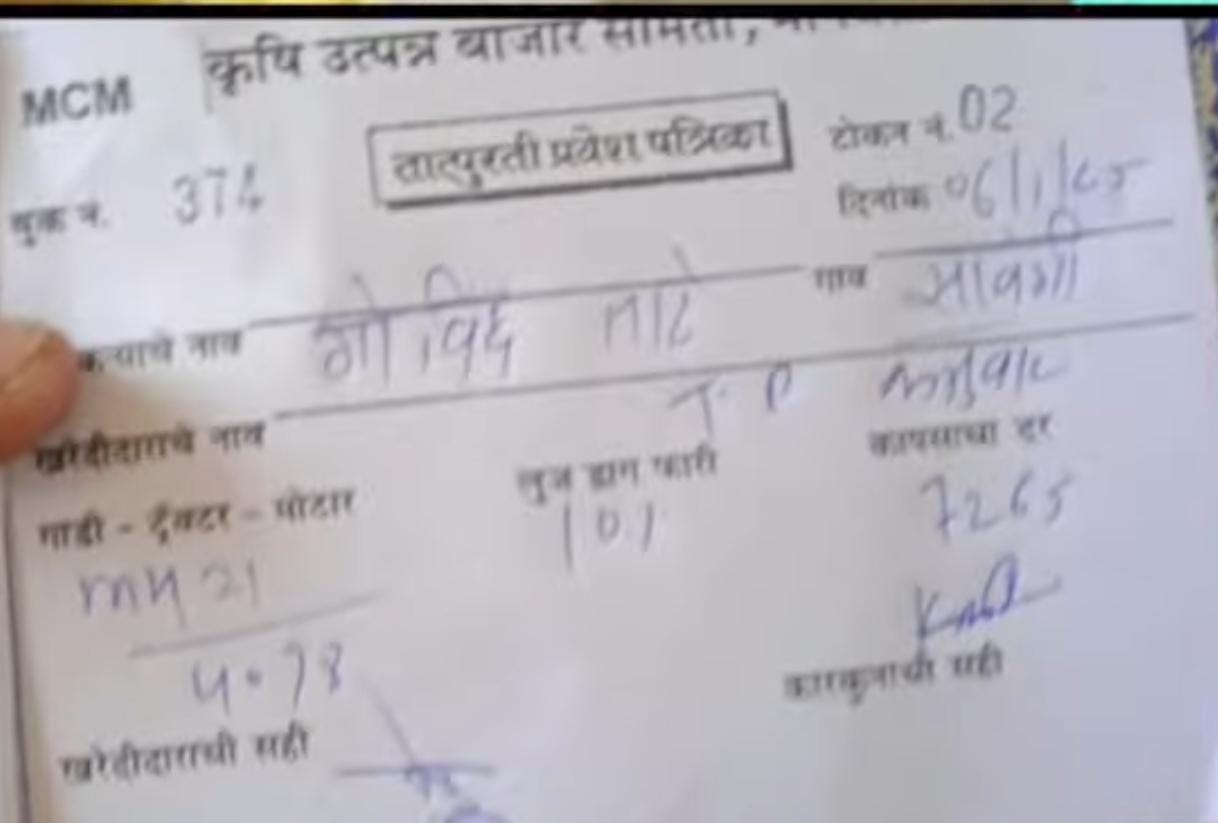 कृषि उत्पन्न बाजार समिती,
MCM
तात्पुरती प्रवेश पत्रिका
टोकन नं. 02
बुक नं. 374
दिनांक 06/1/25
नाव गोविंद ताटे गाव सावंगी
खरेदीदाराचे नाव T. P
गाडी - ट्रॅक्टर - मोटार
कापसाचा दर
MH 21
7265
4078
कारकुनाची सही
खरेदीदाराची सही